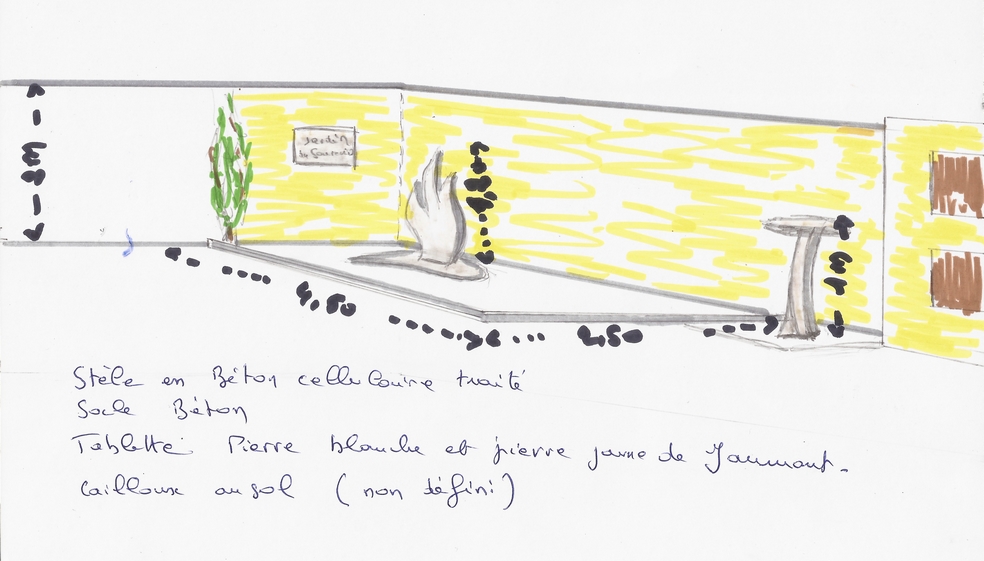 3M
Jardin
du Souvenir
1M
4,50
2,50
Stèle en Béton cellulaire traité
Socle Béton
Tablette: Pierre blanche et pierre jaune de Jaumont.
Cailloux au sol (non défini)